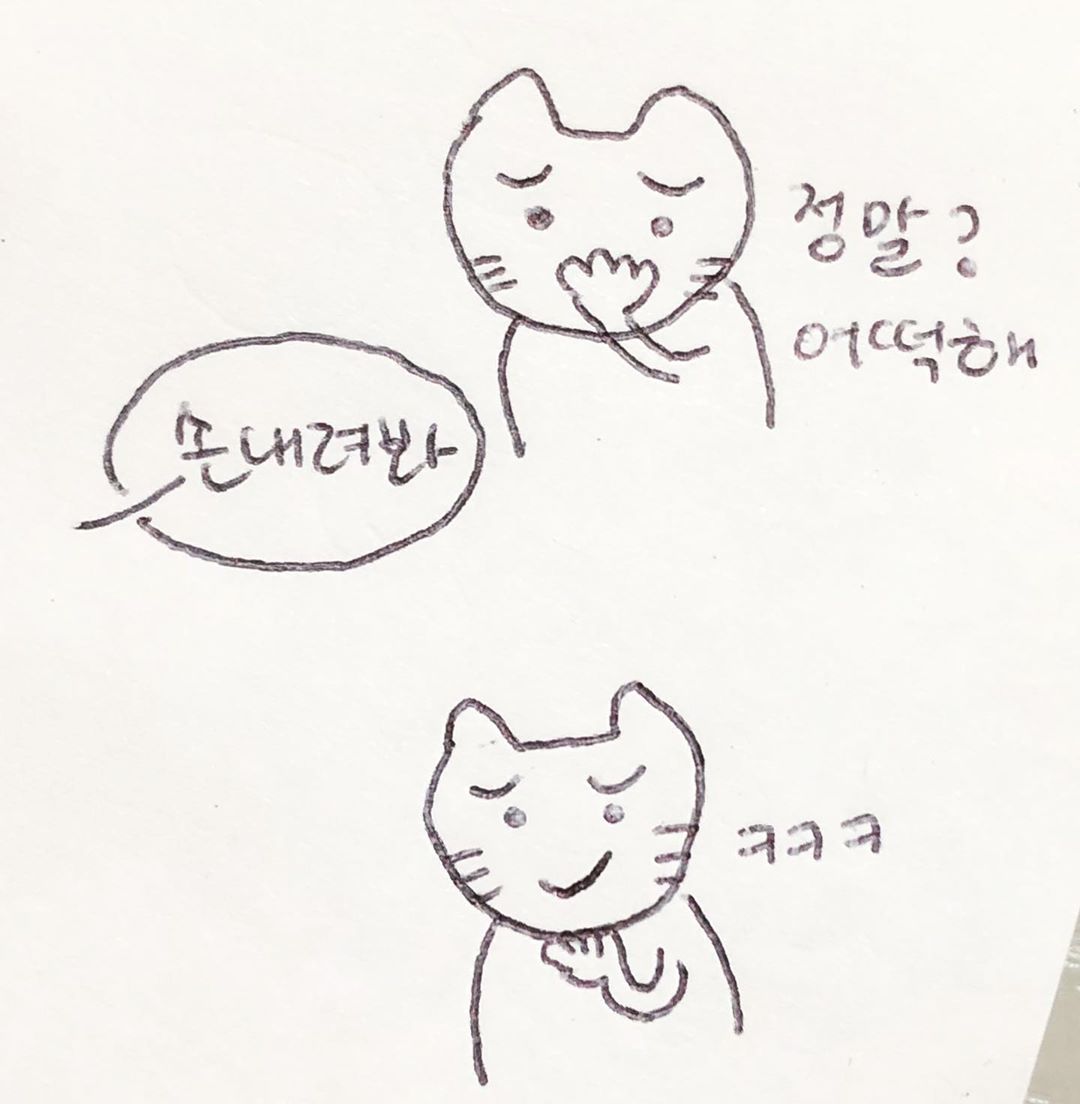 정말?
어떡해
손내려봐
ㅋㅋㅋ